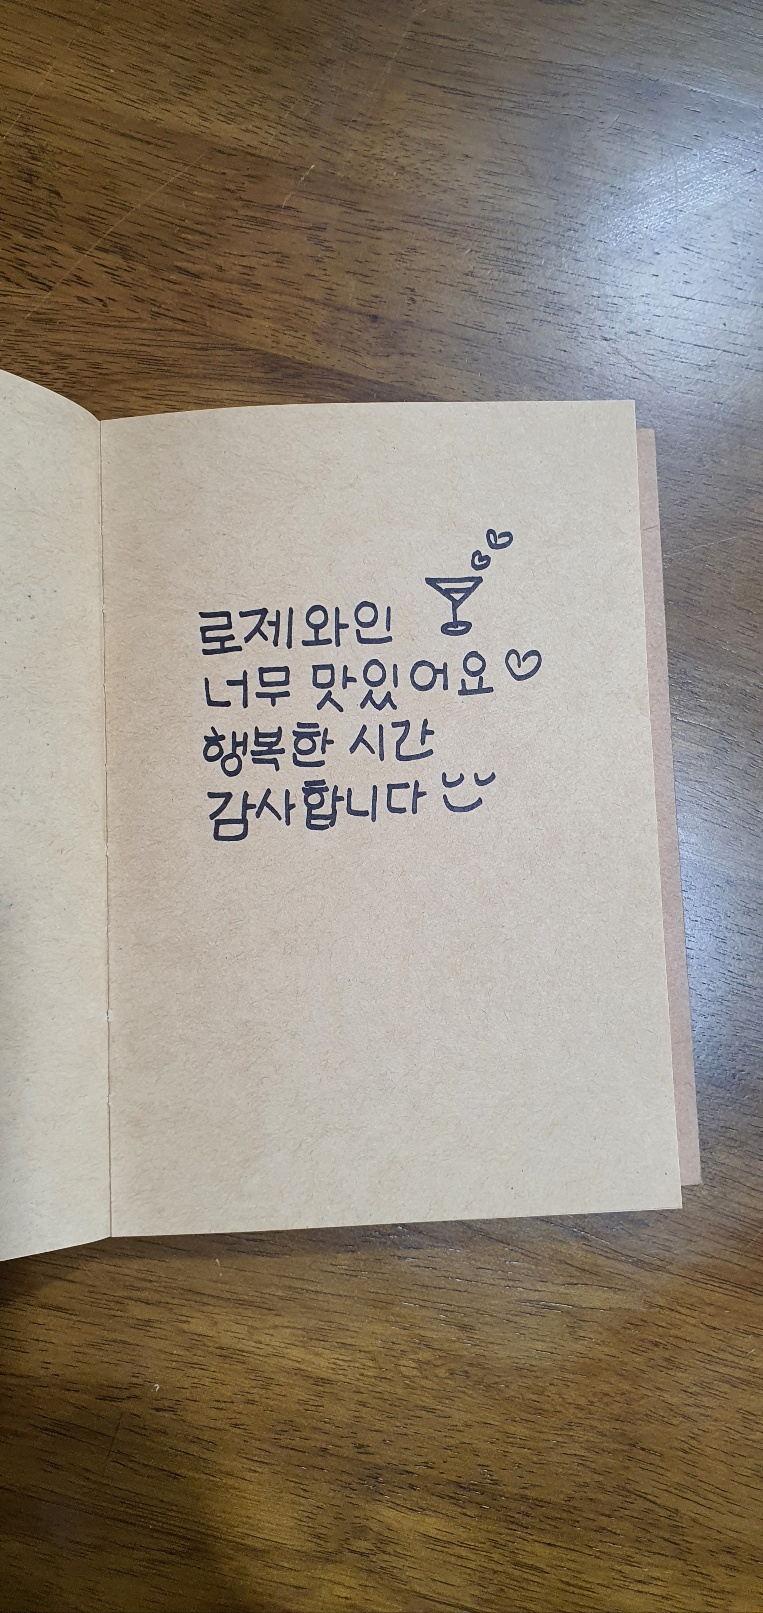 로제와인
너무 맛있어요♡
행복한 시간
감사합니다